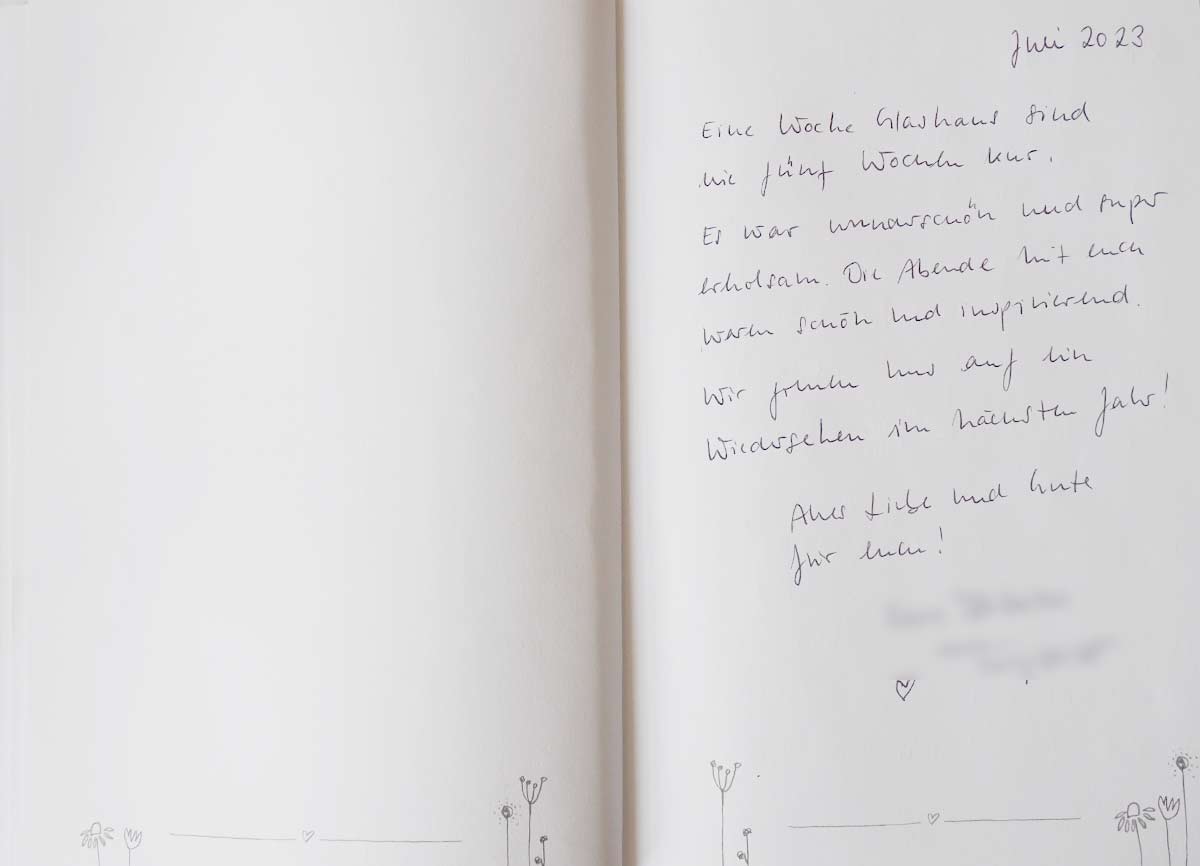 Juli 2023
Eine Woche Glashaus sind
wie fünf Wochen Kur.
Es war wunderschön und super
erholsam. Die Abende mit euch
waren schön und inspirierend.
Wir freuen uns auf ein
Wiedersehen im nächsten Jahr!
Alles Liebe und Gute
für euch!